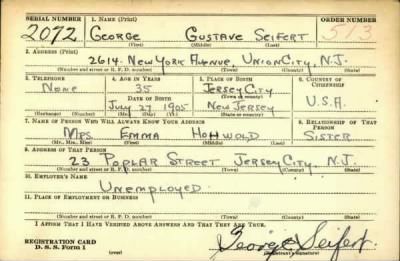 SERIAL NUMBER 1. NAME (Print) ORDER NUMBER
2092 GEORGE GUSTAVE SEIFERT 513
(First) (Middle) (Last)
2. ADDRESS (Print)
2614 NEW YORK AVENUE, UNION CITY, N.J.
(Number and street or R. F. D. number) (Town) (County) (State)
3. TELEPHONE 4. AGE IN YEARS 5. PLACE OF BIRTH 6. COUNTRY OF CITIZENSHIP
NONE 35 JERSEY CITY
DATE OF BIRTH (Town or county)
JULY 27 1905 NEW JERSEY U.S.A.
(Exchange) (No.) (Mo.) (Day) (Yr.) (State or country)
7. NAME OF PERSON WHO WILL ALWAYS KNOW YOUR ADDRESS 8. RELATIONSHIP OF THAT PERSON
MRS. EMMA SISTER
(Mr., Mrs., Miss) (First) (Middle) (Last)
9. ADDRESS OF THAT PERSON
23 POPLAR STREET JERSEY CITY, N.J.
(Number and street or R. F. D. number) (Town) (County) (State)
10. EMPLOYER'S NAME
UNEMPLOYED
11. PLACE OF EMPLOYMENT OR BUSINESS
(Number and street or R. F. D. number) (Town) (County) (State)
I AFFIRM THAT I HAVE VERIFIED ABOVE ANSWERS AND THAT THEY ARE TRUE.
REGISTRATION CARD
D. S. S. Form 1 (over) George Seifert
(Registrant's signature)